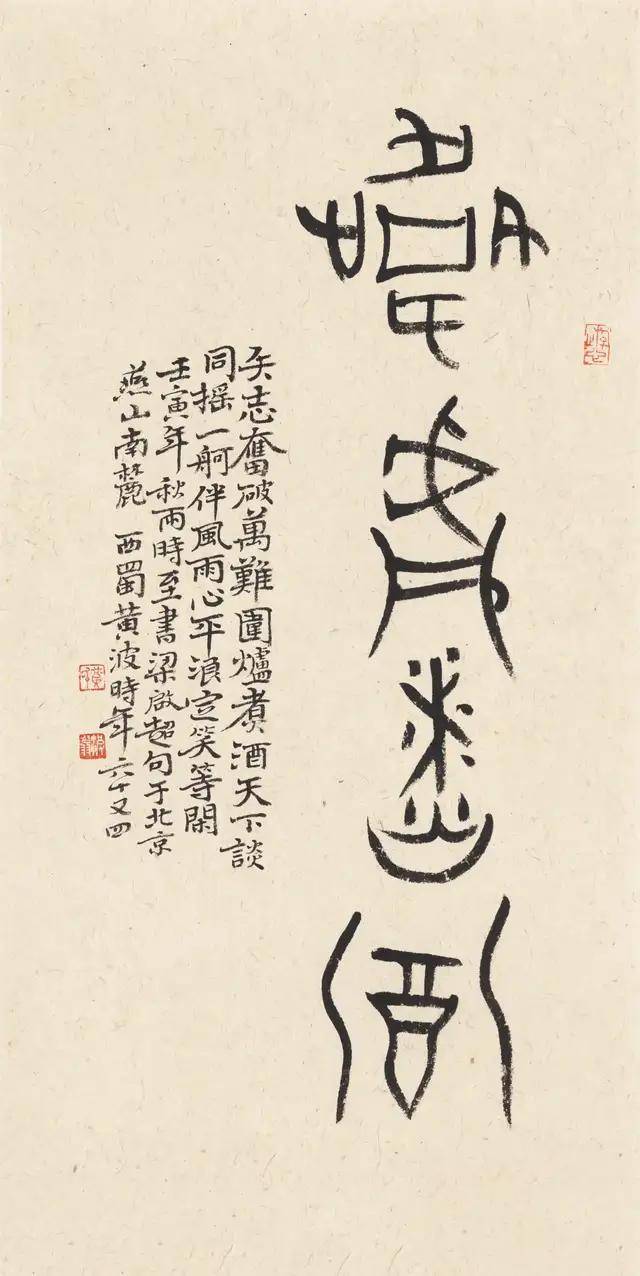 圍爐煮酒
矢志奮破萬難圍爐煮酒天下談
同搖一舸伴風雨心平浪笑等閑
壬寅年秋雨時至書梁啟超句于北京
燕山南麓 西蜀黃波時年六十又四